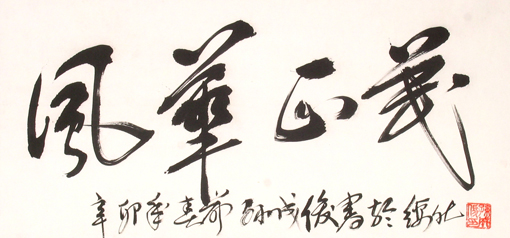 風華正茂
辛卯年春 孙成俊書於